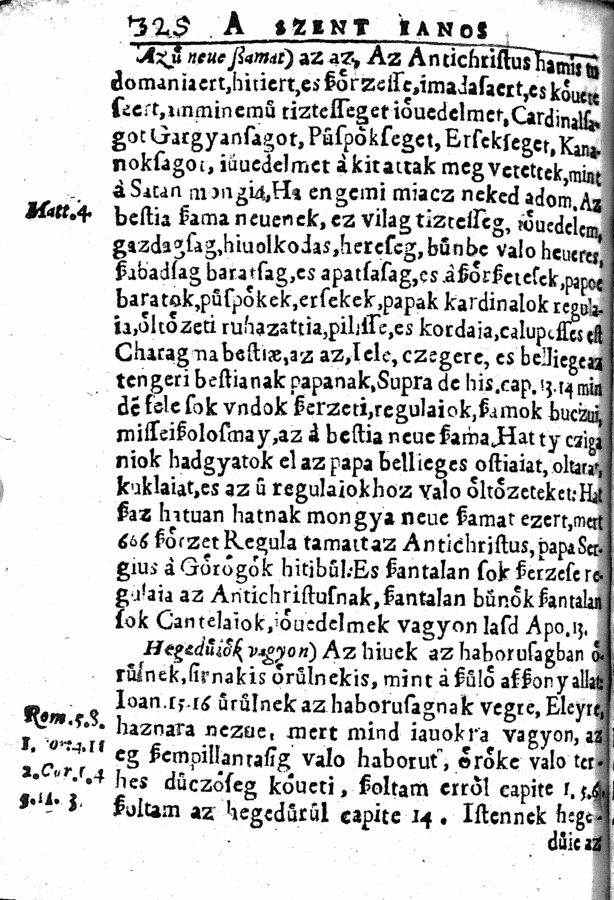 325 A SZENT IANOS
Az ű neue ßamat) az az, Az Antichriſtus hamis tu
domaniaert, hitiert, es ßőrzeſſe, imadaſaert, es kőuete
ſeert, minmemű tizteſſeget iőuedelmet, Cardinalſa-
got Gargyanſagot, Pűſpőkſeget, Erſekſeget, Kana-
nokſagot, iűuedelmet à kitattak meg vetettek, mint
à Satan mongia, Ha engemi miacz neked adom, Az
Matt. 4.
beſtia ßama neuenek, ez vilag tizteſſeg, iőuedelem,
gazdagſag, hiuolkodas, hereſeg, bűnbe valo heueres,
ßabadſag baratſag, es apatſaſag, es à ßőrßeteſek, papoc
baratok, pűſpőkek, erſekek, papak kardinalok regula-
ia, őltőzeti ruhazattia, piliſſe, es kordaia, calupeſſes eſt
Charagma beſtiæ, az az, Iele, czegere, es belliege az
tengeri beſtianak papanak, Supra de his. cap. 13. 14 min
dē fele ſok vndok ßerzeti, regulaiok, ßamok buczui,
miſſei ßoloſmay, az à beſtia neue ßama, Hat ty cziga
niok hadgyatok el az papa bellieges oſtiaiat, oltarat,
kuklaiat, es az ű regulaiokhoz valo őltőzeteket: Hat
ßaz hatuan hatnak mongya neue ßamat ezert, mert
666 ßőrzet Regula tamatt az Antichriſtus, papa Ser-
gius à Gőrőgők hitibűl: Es ßantalan ſok ßerzeſe re-
gulaia az Antichriſtuſnak, ßantalan bűnők ßantalan
ſok Cantelaiok, iőuedelmek vagyon laſd Apo. 13.
Hegedűiők vagyon) Az hiuek az haboruſagban ő-
rűlnek, ſirnakis őrűlnekis, mint à ßűlő aſſony allat:
Ioan. 15. 16 űrűlnek az haboruſagnak vegre, Eleyre,
Rom. 5. 8.
haznara nezue, mert mind iauokra vagyon, az
eg ßempillantaſig valo haborut, őrőke valo ter-
2. Cor. 1. 4
hes dűczőſeg kőueti, ßoltam erről capite 1. 5. 6.
ßoltam az hegedűrűl capite 14. Iſtennek hege-
dűie az